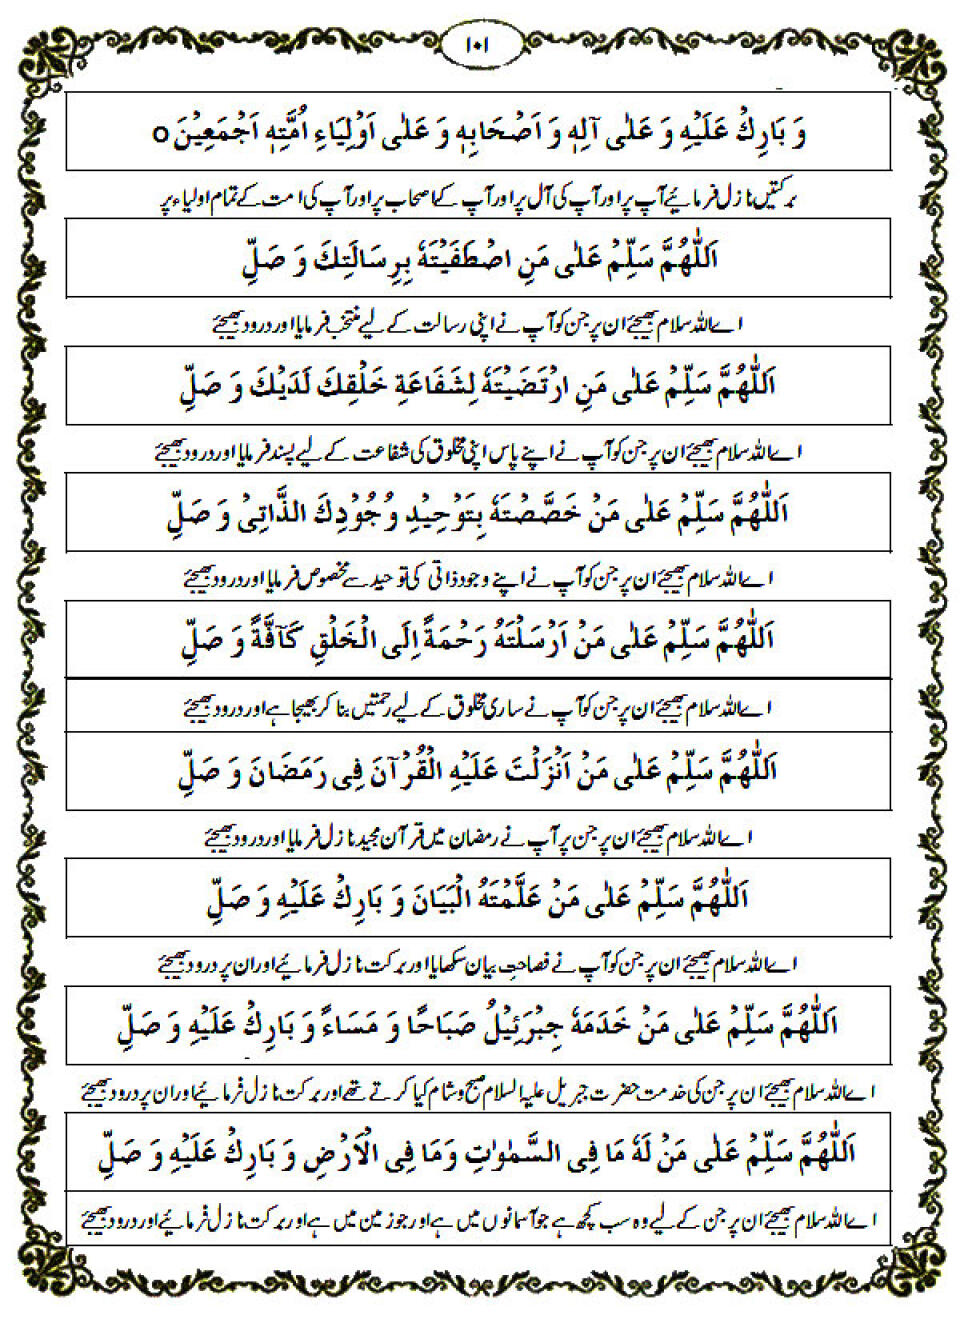 ۱۰۱
وَ بَارِكْ عَلَيْهِ وَ عَلٰى آلِهٖ وَ اَصْحَابِهٖ وَ عَلٰى اَوْلِيَاءِ اُمَّتِهٖ اَجْمَعِيْنَ ٥
برکتیں نازل فرمائیے آپ پر اور آپ کی آل پر اور آپ کے اصحاب پر اور آپ کی امت کے تمام اولیاء پر
اَللّٰهُمَّ سَلِّمْ عَلٰى مَنِ اصْطَفَيْتَهٗ بِرِسَالَتِكَ وَ صَلِّ
اے اللہ سلام بھیجئے ان پر جن کو آپ نے اپنی رسالت کے لیے منتخب فرمایا اور درود بھیجئے
اَللّٰهُمَّ سَلِّمْ عَلٰى مَنِ ارْتَضَيْتَهٗ لِشَفَاعَةِ خَلْقِكَ لَدَيْكَ وَ صَلِّ
اے اللہ سلام بھیجئے ان پر جن کو آپ نے اپنے پاس اپنی مخلوق کی شفاعت کے لیے پسند فرمایا اور درود بھیجئے
اَللّٰهُمَّ سَلِّمْ عَلٰى مَنْ خَصَّصْتَهٗ بِتَوْحِيْدِ وُجُوْدِكَ الذَّاتِىْ وَ صَلِّ
اے اللہ سلام بھیجئے ان پر جن کو آپ نے اپنے وجود ذاتی کی توحید سے مخصوص فرمایا اور درود بھیجئے
اَللّٰهُمَّ سَلِّمْ عَلٰى مَنْ اَرْسَلْتَهٗ رَحْمَةً اِلَى الْخَلْقِ كَآفَّةً وَ صَلِّ
اے اللہ سلام بھیجئے ان پر جن کو آپ نے ساری مخلوق کے لیے رحمتیں بنا کر بھیجا ہے اور درود بھیجئے
اَللّٰهُمَّ سَلِّمْ عَلٰى مَنْ اَنْزَلْتَ عَلَيْهِ الْقُرْآنَ فِى رَمَضَانَ وَ صَلِّ
اے اللہ سلام بھیجئے ان پر جن پر آپ نے رمضان میں قرآن مجید نازل فرمایا اور درود بھیجئے
اَللّٰهُمَّ سَلِّمْ عَلٰى مَنْ عَلَّمْتَهُ الْبَيَانَ وَ بَارِكْ عَلَيْهِ وَ صَلِّ
اے اللہ سلام بھیجئے ان پر جن کو آپ نے فصاحتِ بیان سکھایا اور برکت نازل فرمائیے اور ان پر درود بھیجئے
اَللّٰهُمَّ سَلِّمْ عَلٰى مَنْ خَدَمَهٗ جِبْرَئِيْلُ صَبَاحًا وَ مَسَاءً وَ بَارِكْ عَلَيْهِ وَ صَلِّ
اے اللہ سلام بھیجئے ان پر جن کی خدمت حضرت جبریل علیہ السلام صبح و شام کیا کرتے تھے اور برکت نازل فرمائیے اور ان پر درود بھیجئے
اَللّٰهُمَّ سَلِّمْ عَلٰى مَنْ لَهٗ مَا فِى السَّمٰوٰتِ وَمَا فِى الْاَرْضِ وَ بَارِكْ عَلَيْهِ وَ صَلِّ
اے اللہ سلام بھیجئے ان پر جن کے لیے وہ سب کچھ ہے جو آسمانوں میں ہے اور جو زمین میں ہے اور برکت نازل فرمائیے اور درود بھیجئے